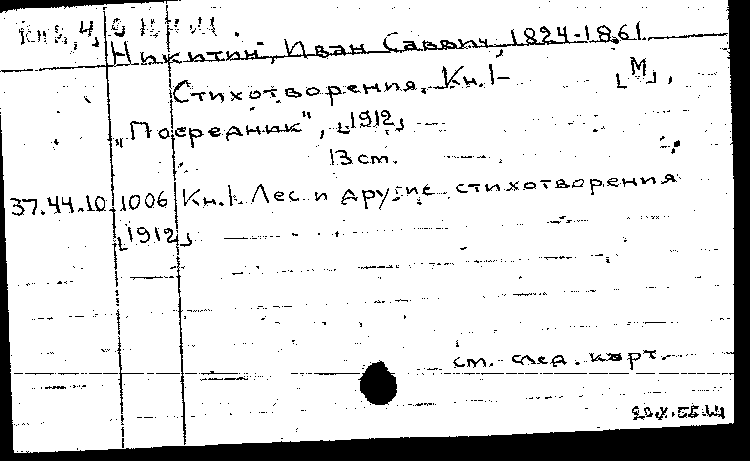 Никитин, Иван Саввич, 1824-1861
Стихотворения. Кн. 1- [М],
"Посредник", [1912]
13 см.
37.44.10.1006 Кн. 1. Лес и другие стихотворения
[1912]
см. след. карт.